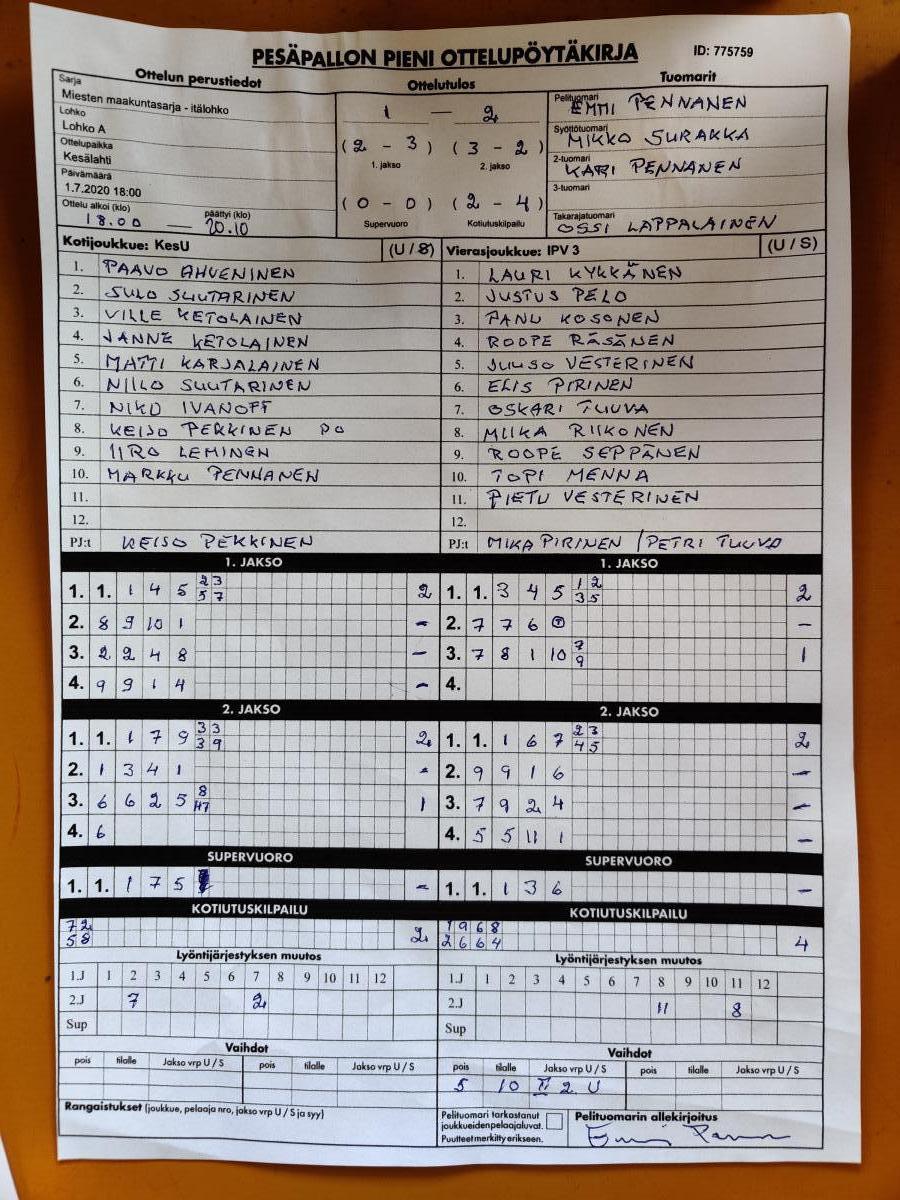 PESÄPALLON PIENI OTTELUPÖYTÄKIRJA
ID: 775759
Ottelun perustiedot
Sarja
Miesten maakuntasarja - itälohko
Lohko
Lohko A
Ottelupaikka
Kesälahti
Päivämäärä
1.7.2020 18:00
Ottelu alkoi (klo) päättyi (klo)
18.00 — 20.10
Ottelutulos
1 — 2
(2 - 3) (3 - 2)
1. jakso 2. jakso
(0 - 0) (2 - 4)
Supervuoro Kotiutuskilpailu
Tuomarit
Pelituomari
EMMI PENNANEN
Syöttötuomari
MIKKO SURAKKA
2-tuomari
KARI PENNANEN
3-tuomari
Takarajatuomari
OSSI LAPPALAINEN
Kotijoukkue: KesU (U / S)
1. PAAVO AHVENINEN
2. SULO SUUTARINEN
3. VILLE KETOLAINEN
4. JANNE KETOLAINEN
5. MATTI KARJALAINEN
6. NIILO SUUTARINEN
7. NIKO IVANOFF
8. KEIJO PEKKINEN PO
9. IIRO LEMINEN
10. MARKKU PENNANEN
11.
12.
PJ:t KEIJO PEKKINEN
Vierasjoukkue: IPV 3 (U / S)
1. LAURI KYKKÄNEN
2. JUSTUS PELO
3. PANU KOSONEN
4. ROOPE RÄSÄNEN
5. JUUSO VESTERINEN
6. ELIS PIRINEN
7. OSKARI TUUVA
8. MIIKA RIIKONEN
9. ROOPE SEPPÄNEN
10. TOPI MENNA
11. PIETU VESTERINEN
12.
PJ:t MIKA PIRINEN / PETRI TUUVA
1. JAKSO
1. 1. 1 4 5 2 3 2
5 7
2. 8 9 10 1 -
3. 2 2 4 8 -
4. 9 9 1 4 -
1. JAKSO
1. 1. 3 4 5 1 2 2
3 5
2. 7 7 6 -
3. 7 8 1 10 7 1
9
4.
2. JAKSO
1. 1. 1 7 9 3 3 2
3 9
2. 1 3 4 1 -
3. 6 6 2 5 8 1
4. 6
2. JAKSO
1. 1. 1 6 7 2 3 2
4 5
2. 9 9 1 6 -
3. 7 9 2 4 -
4. 5 5 11 1 -
SUPERVUORO
1. 1. 1 7 5 -
SUPERVUORO
1. 1. 1 3 6 -
KOTIUTUSKILPAILU
7 2
5 8 2
KOTIUTUSKILPAILU
1 9 6 8
2 6 6 4 4
Lyöntijärjestyksen muutos
1.J 1 2 3 4 5 6 7 8 9 10 11 12
2.J 7 2
Sup
Lyöntijärjestyksen muutos
1.J 1 2 3 4 5 6 7 8 9 10 11 12
2.J 11 8
Sup
Vaihdot
pois tilalle Jakso vrp U / S pois tilalle Jakso vrp U / S
Vaihdot
pois tilalle Jakso vrp U / S pois tilalle Jakso vrp U / S
5 10 II 2. U
Rangaistukset (joukkue, pelaaja nro, jakso vrp U / S ja syy)
Pelituomari tarkastanut
joukkueidenpelaajaluvat.
Puutteet merkitty erikseen.
Pelituomarin allekirjoitus